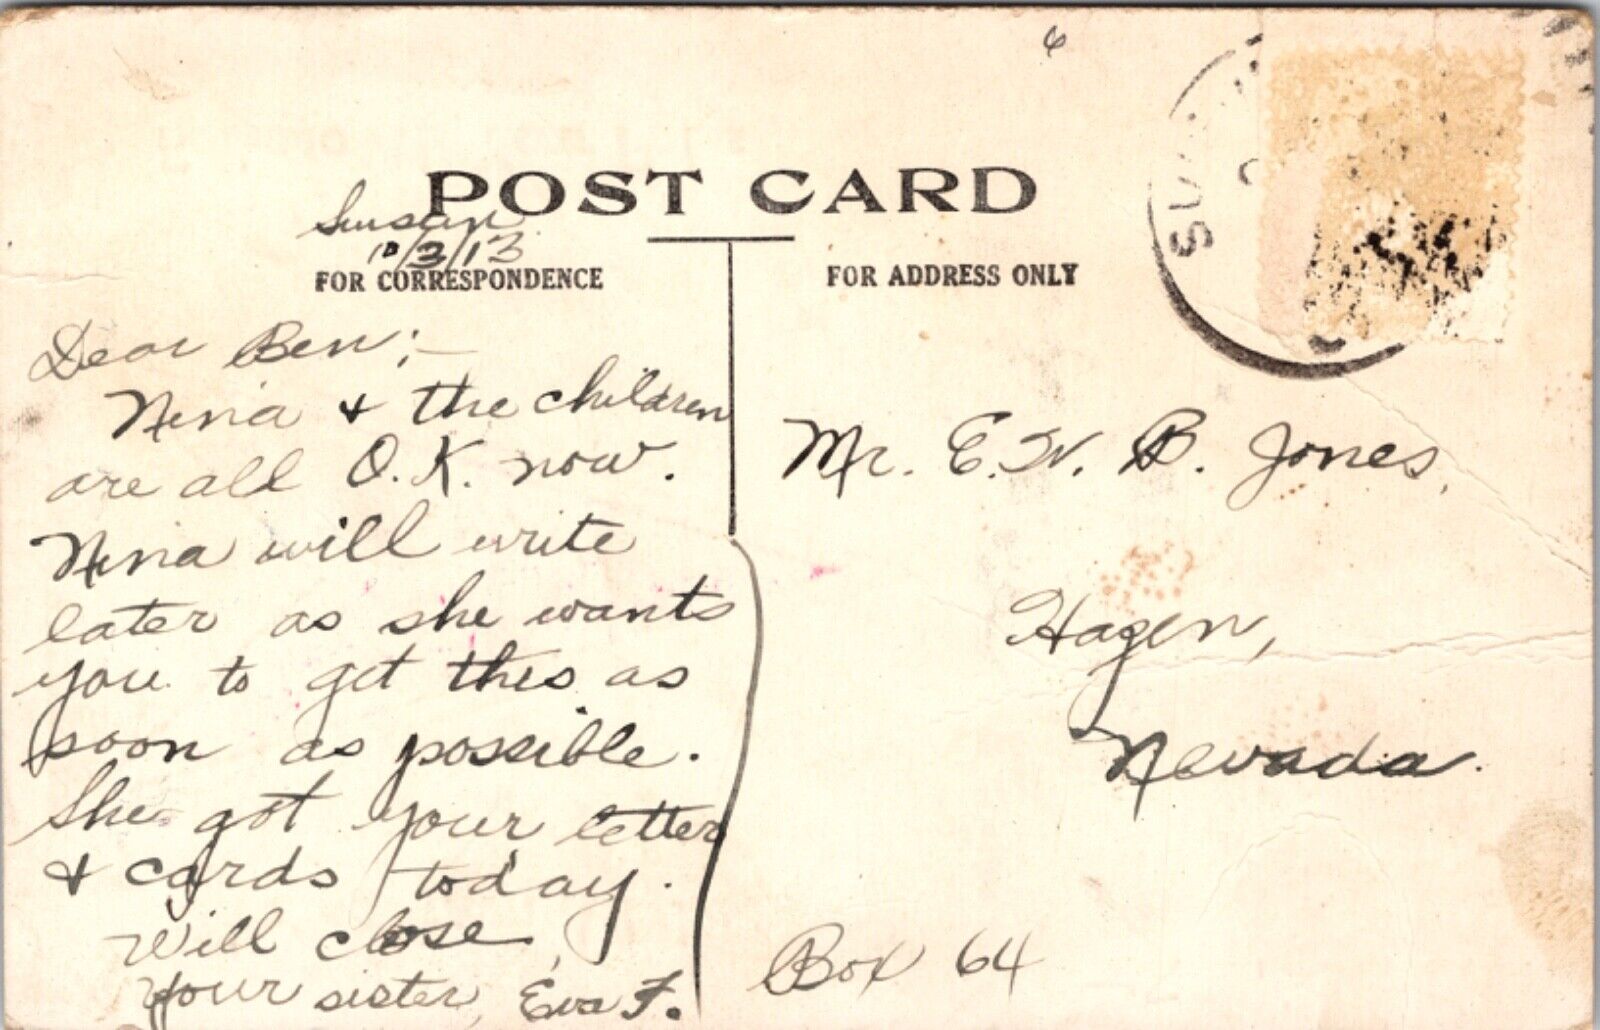 6
POST CARD
Susan
10/3/13
FOR CORRESPONDENCE
Dear Ben;—
Nena & the children
are all O.K. now.
Nena will write
later as she wants
you to get this as
soon as possible.
She got your letter
& cards today.
Will close,
your sister, Eva F.
FOR ADDRESS ONLY
Mr. E. W. B. Jones,
Hazen,
Nevada.
Box 64